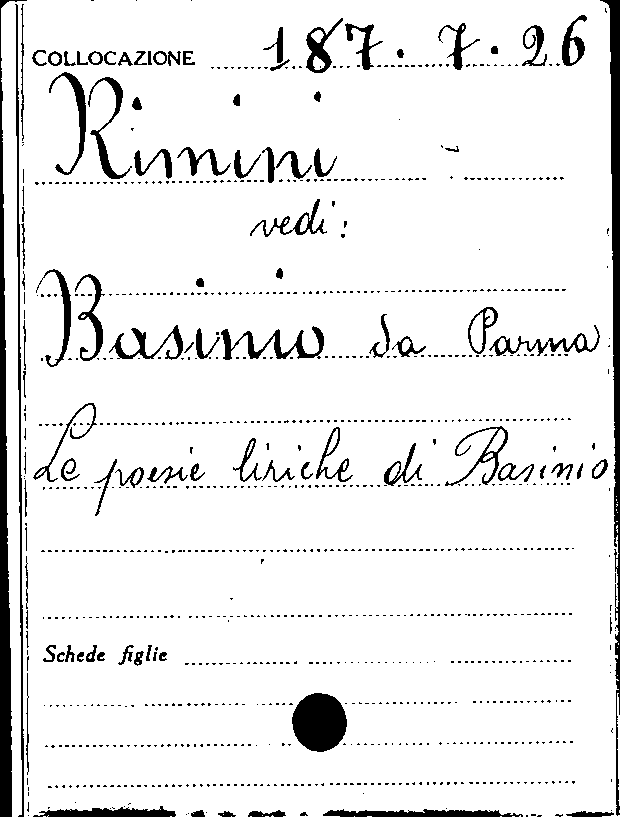 COLLOCAZIONE 187.7.26
Rimini
vedi:
Basinio da Parma
Le poesie liriche di Basinio
Schede figlie